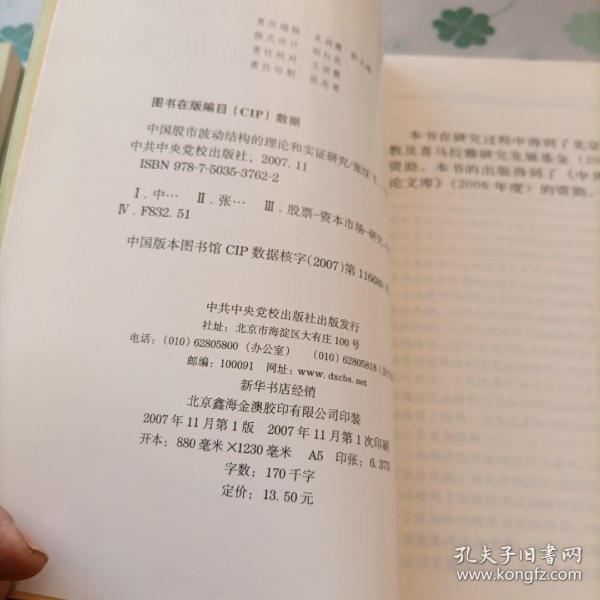 责任编辑
版式设计 赵红民
责任校对 王洪霞
责任印制 张志军
图书在版编目（CIP）数据
中国股市波动结构的理论和实证研究/张汉
中共中央党校出版社，2007.11
ISBN 978-7-5035-3762-2
Ⅰ.中… Ⅱ.张… Ⅲ.股票-资本市场-研究-
Ⅳ.F832.51
中国版本图书馆 CIP 数据核字(2007)第 116689
中共中央党校出版社出版发行
社址：北京市海淀区大有庄100号
电话：(010) 62805800（办公室） (010) 62805818
邮编：100091 网址：www.dxcbs.net
新华书店经销
北京鑫海金澳胶印有限公司印装
2007年11月第1版 2007年11月第1次印刷
开本：880毫米×1230毫米 A5 印张：6.375
字数：170千字
定价：13.50元
本书在研究过程中得到了北京
教及喜马拉雅研究发展基金（200
资助。本书的出版得到了《中国
论文库》（2006年度）的资助。
孔夫子旧书网
www.kongfz.com